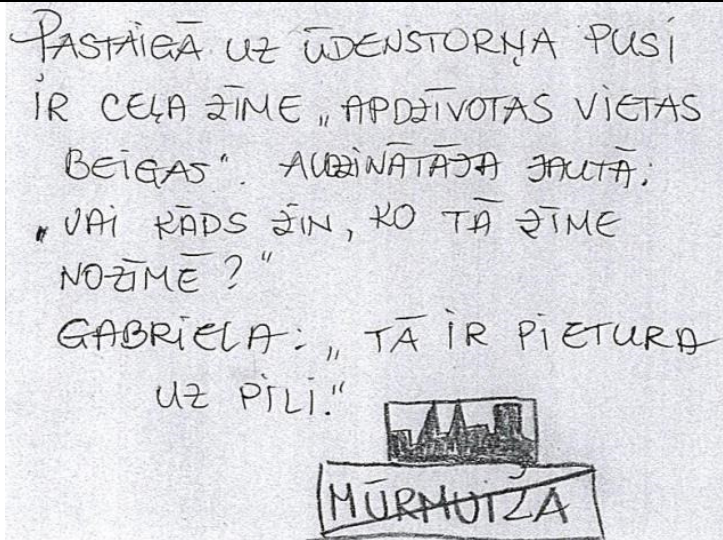 PASTAIGĀ UZ ŪDENSTORŅA PUSI
IR CEĻA ZĪME „APDZĪVOTAS VIETAS
BEIGAS". AUDZINĀTĀJA JAUTĀ:
„VAI KĀDS ZIN, KO TĀ ZĪME
NOZĪMĒ?"
GABRIELA: „TĀ IR PIETURA
UZ PILI."
MŪRMUIŽA